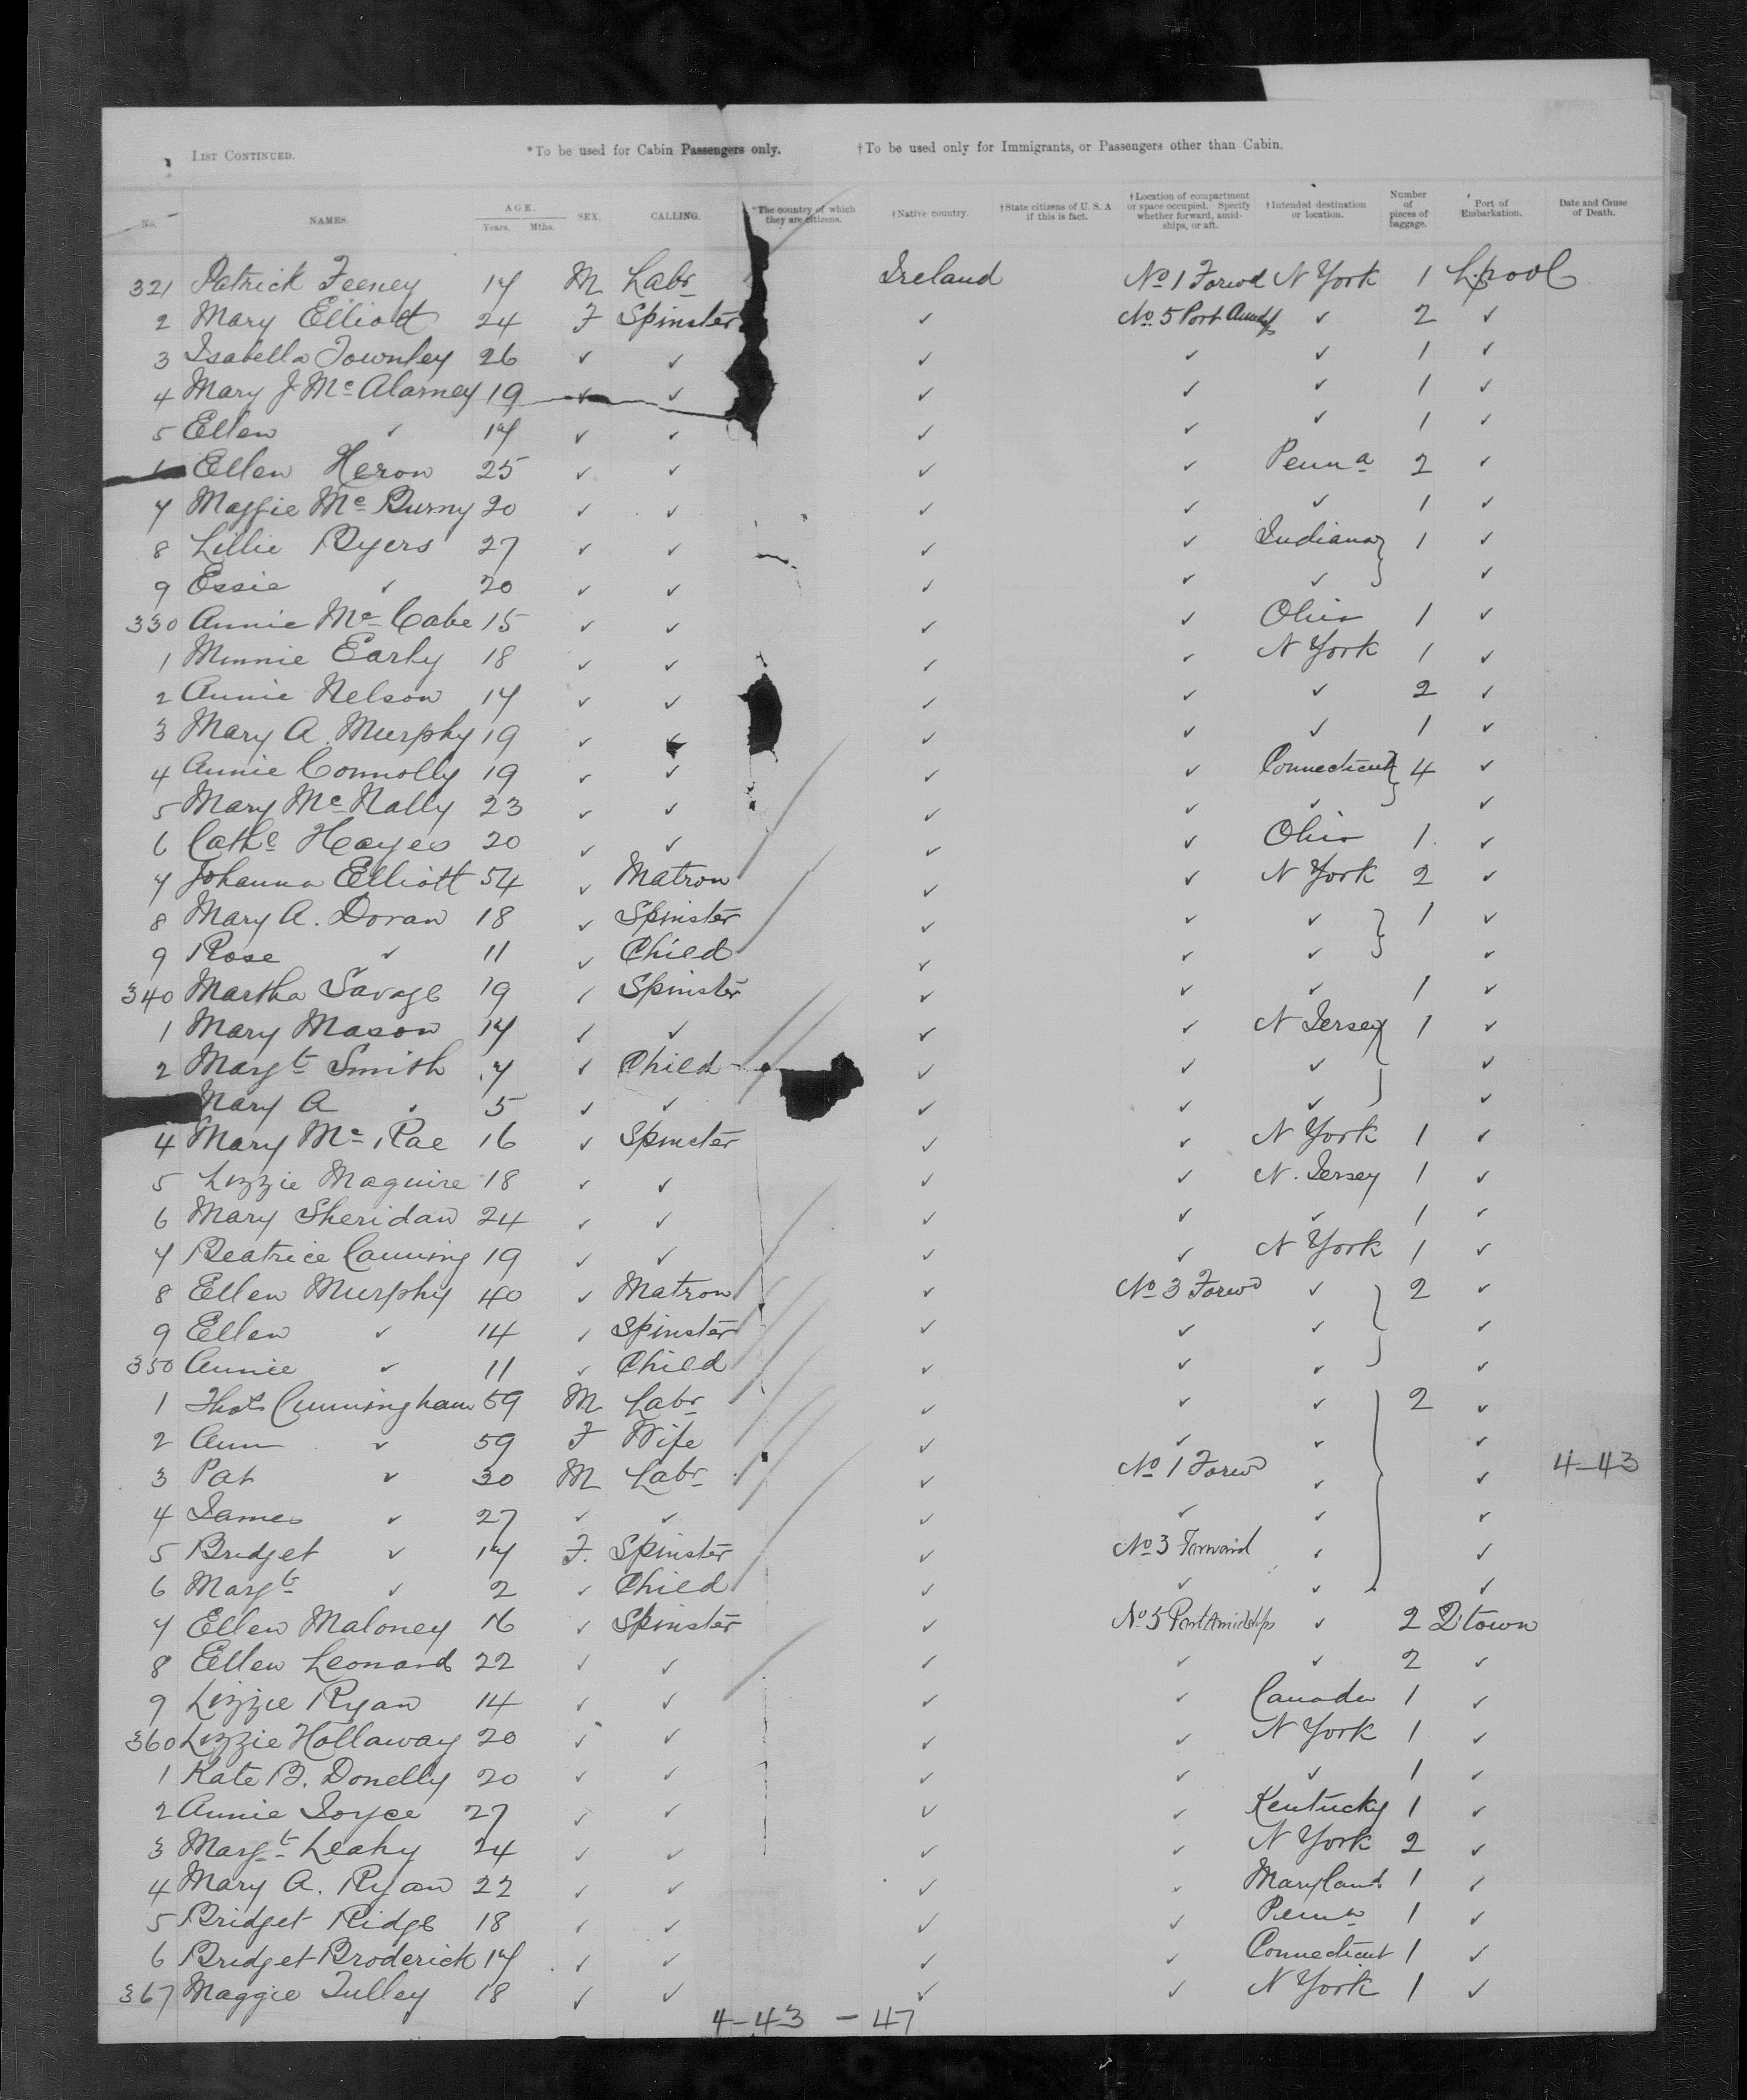 LIST CONTINUED. *To be used for Cabin Passengers only. †To be used only for Immigrants, or Passengers other than Cabin.
No. NAMES. AGE. Years. Mths. SEX. CALLING. *The country of which they are citizens. †Native country. †State citizens of U. S. A if this is fact. †Location of compartment or space occupied. Specify whether forward, amid-ships, or aft. †Intended destination or location. Number of pieces of baggage. Port of Embarkation. Date and Cause of Death.
321 Patrick Feeney 17 M Labr Ireland No 1 Forwd N York 1 L.pool
2 Mary Elliott 24 F Spinster ✓ No 5 Port Amids ✓ 2 ✓
3 Isabella Townley 26 ✓ ✓ ✓ ✓ ✓ 1 ✓
4 Mary J Mc Alarney 19 ✓ ✓ ✓ ✓ ✓ 1 ✓
5 Ellen ✓ 17 ✓ ✓ ✓ ✓ ✓ 1 ✓
Ellen Heron 25 ✓ ✓ ✓ ✓ Penna 2 ✓
7 Maggie Mc Burny 20 ✓ ✓ ✓ ✓ ✓ 1 ✓
8 Lillie Byers 27 ✓ ✓ ✓ ✓ Indiana } 1 ✓
9 Essie ✓ 20 ✓ ✓ ✓ ✓ ✓ ✓
330 Annie Mc Cabe 15 ✓ ✓ ✓ ✓ Ohio 1 ✓
1 Minnie Early 18 ✓ ✓ ✓ ✓ N York 1 ✓
2 Annie Nelson 17 ✓ ✓ ✓ ✓ ✓ 2 ✓
3 Mary A. Murphy 19 ✓ ✓ ✓ ✓ ✓ 1 ✓
4 Annie Connolly 19 ✓ ✓ ✓ ✓ Connecticut } 4 ✓
5 Mary Mc Nally 23 ✓ ✓ ✓ ✓ ✓ ✓
6 Cathe Hayes 20 ✓ ✓ ✓ ✓ Ohio 1 ✓
7 Johanna Elliott 54 ✓ Matron ✓ ✓ N York 2 ✓
8 Mary A. Doran 18 ✓ Spinster ✓ ✓ ✓ } 1 ✓
9 Rose ✓ 11 ✓ Child ✓ ✓ ✓ ✓
340 Martha Savage 19 ✓ Spinster ✓ ✓ ✓ 1 ✓
1 Mary Mason 17 ✓ ✓ ✓ ✓ N Jersey } 1 ✓
2 Margt Smith 7 ✓ Child ✓ ✓ ✓ ✓
Mary A ✓ 5 ✓ ✓ ✓ ✓ ✓ ✓
4 Mary Mc Rae 16 ✓ Spinster ✓ ✓ N York 1 ✓
5 Lizzie Maguire 18 ✓ ✓ ✓ ✓ N. Jersey 1 ✓
6 Mary Sheridan 24 ✓ ✓ ✓ ✓ ✓ 1 ✓
7 Beatrice Canning 19 ✓ ✓ ✓ ✓ N York 1 ✓
8 Ellen Murphy 40 ✓ Matron ✓ No 3 Forwd ✓ } 2 ✓
9 Ellen ✓ 14 ✓ Spinster ✓ ✓ ✓ ✓
350 Annie ✓ 11 ✓ Child ✓ ✓ ✓ ✓
1 Thos Cunningham 59 M Labr ✓ ✓ ✓ } 2 ✓
2 Ann ✓ 59 F Wife ✓ ✓ ✓ ✓
3 Pat ✓ 30 M Labr ✓ No 1 Forwd ✓ ✓ 4-43
4 James ✓ 27 ✓ ✓ ✓ ✓ ✓ ✓
5 Bridget ✓ 17 F. Spinster ✓ No 3 Forward ✓ ✓
6 Margt ✓ 2 ✓ Child ✓ ✓ ✓ ✓
7 Ellen Maloney 16 ✓ Spinster ✓ No 5 Port Amidships ✓ 2 Q.town
8 Ellen Leonard 22 ✓ ✓ ✓ ✓ ✓ 2 ✓
9 Lizzie Ryan 14 ✓ ✓ ✓ ✓ Canada 1 ✓
360 Lizzie Hollaway 20 ✓ ✓ ✓ ✓ N York 1 ✓
1 Kate B. Donelly 20 ✓ ✓ ✓ ✓ ✓ 1 ✓
2 Annie Joyce 27 ✓ ✓ ✓ ✓ Kentucky 1 ✓
3 Margt Leahy 24 ✓ ✓ ✓ ✓ N York 2 ✓
4 Mary A. Ryan 22 ✓ ✓ ✓ ✓ Maryland 1 ✓
5 Bridget Ridge 18 ✓ ✓ ✓ ✓ Penna 1 ✓
6 Bridget Broderick 17 ✓ ✓ ✓ ✓ Connecticut 1 ✓
367 Maggie Tulley 18 ✓ ✓ ✓ ✓ N York 1 ✓
4-43 - 47